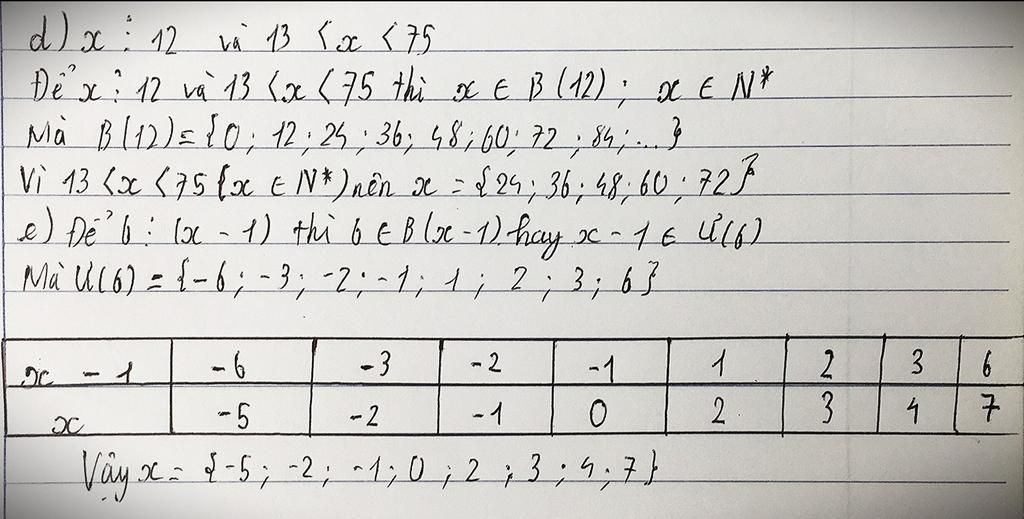 d) x ⋮ 12 và 13 < x < 75
Để x ⋮ 12 và 13 < x < 75 thì x ∈ B(12); x ∈ N*
Mà B(12) = {0; 12; 24; 36; 48; 60; 72; 84; ...}
Vì 13 < x < 75 (x ∈ N*) nên x = {24; 36; 48; 60; 72}
e) Để 6 ⋮ (x - 1) thì 6 ∈ B(x-1) hay x - 1 ∈ Ư(6)
Mà Ư(6) = {-6; -3; -2; -1; 1; 2; 3; 6}
x - 1 -6 -3 -2 -1 1 2 3 6
x -5 -2 -1 0 2 3 4 7
Vậy x = {-5; -2; -1; 0; 2; 3; 4; 7}